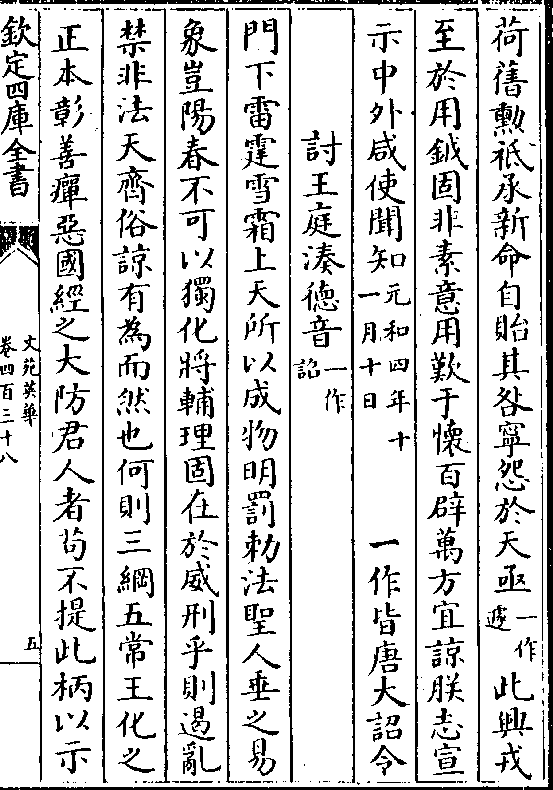 荷舊勲祇承新命自貽其咎寧怨於天亟一作遽此興戎
至於用鉞固非素意用歎于懷百辟萬方宜諒朕志宣
示中外咸使聞知元和四年十一月十日 一作皆唐大詔令
討王庭湊德音一作詔
門下雷霆雪霜上天所以成物明罰勅法聖人垂之易
象豈陽春不可以獨化將輔理固在於威刑乎則遏亂
禁非法天齊俗諒有為而然也何則三綱五常王化之
正本彰善癉惡國經之大防君人者苟不提此柄以示
欽定四庫全書
文苑英華
卷四百三十八
五